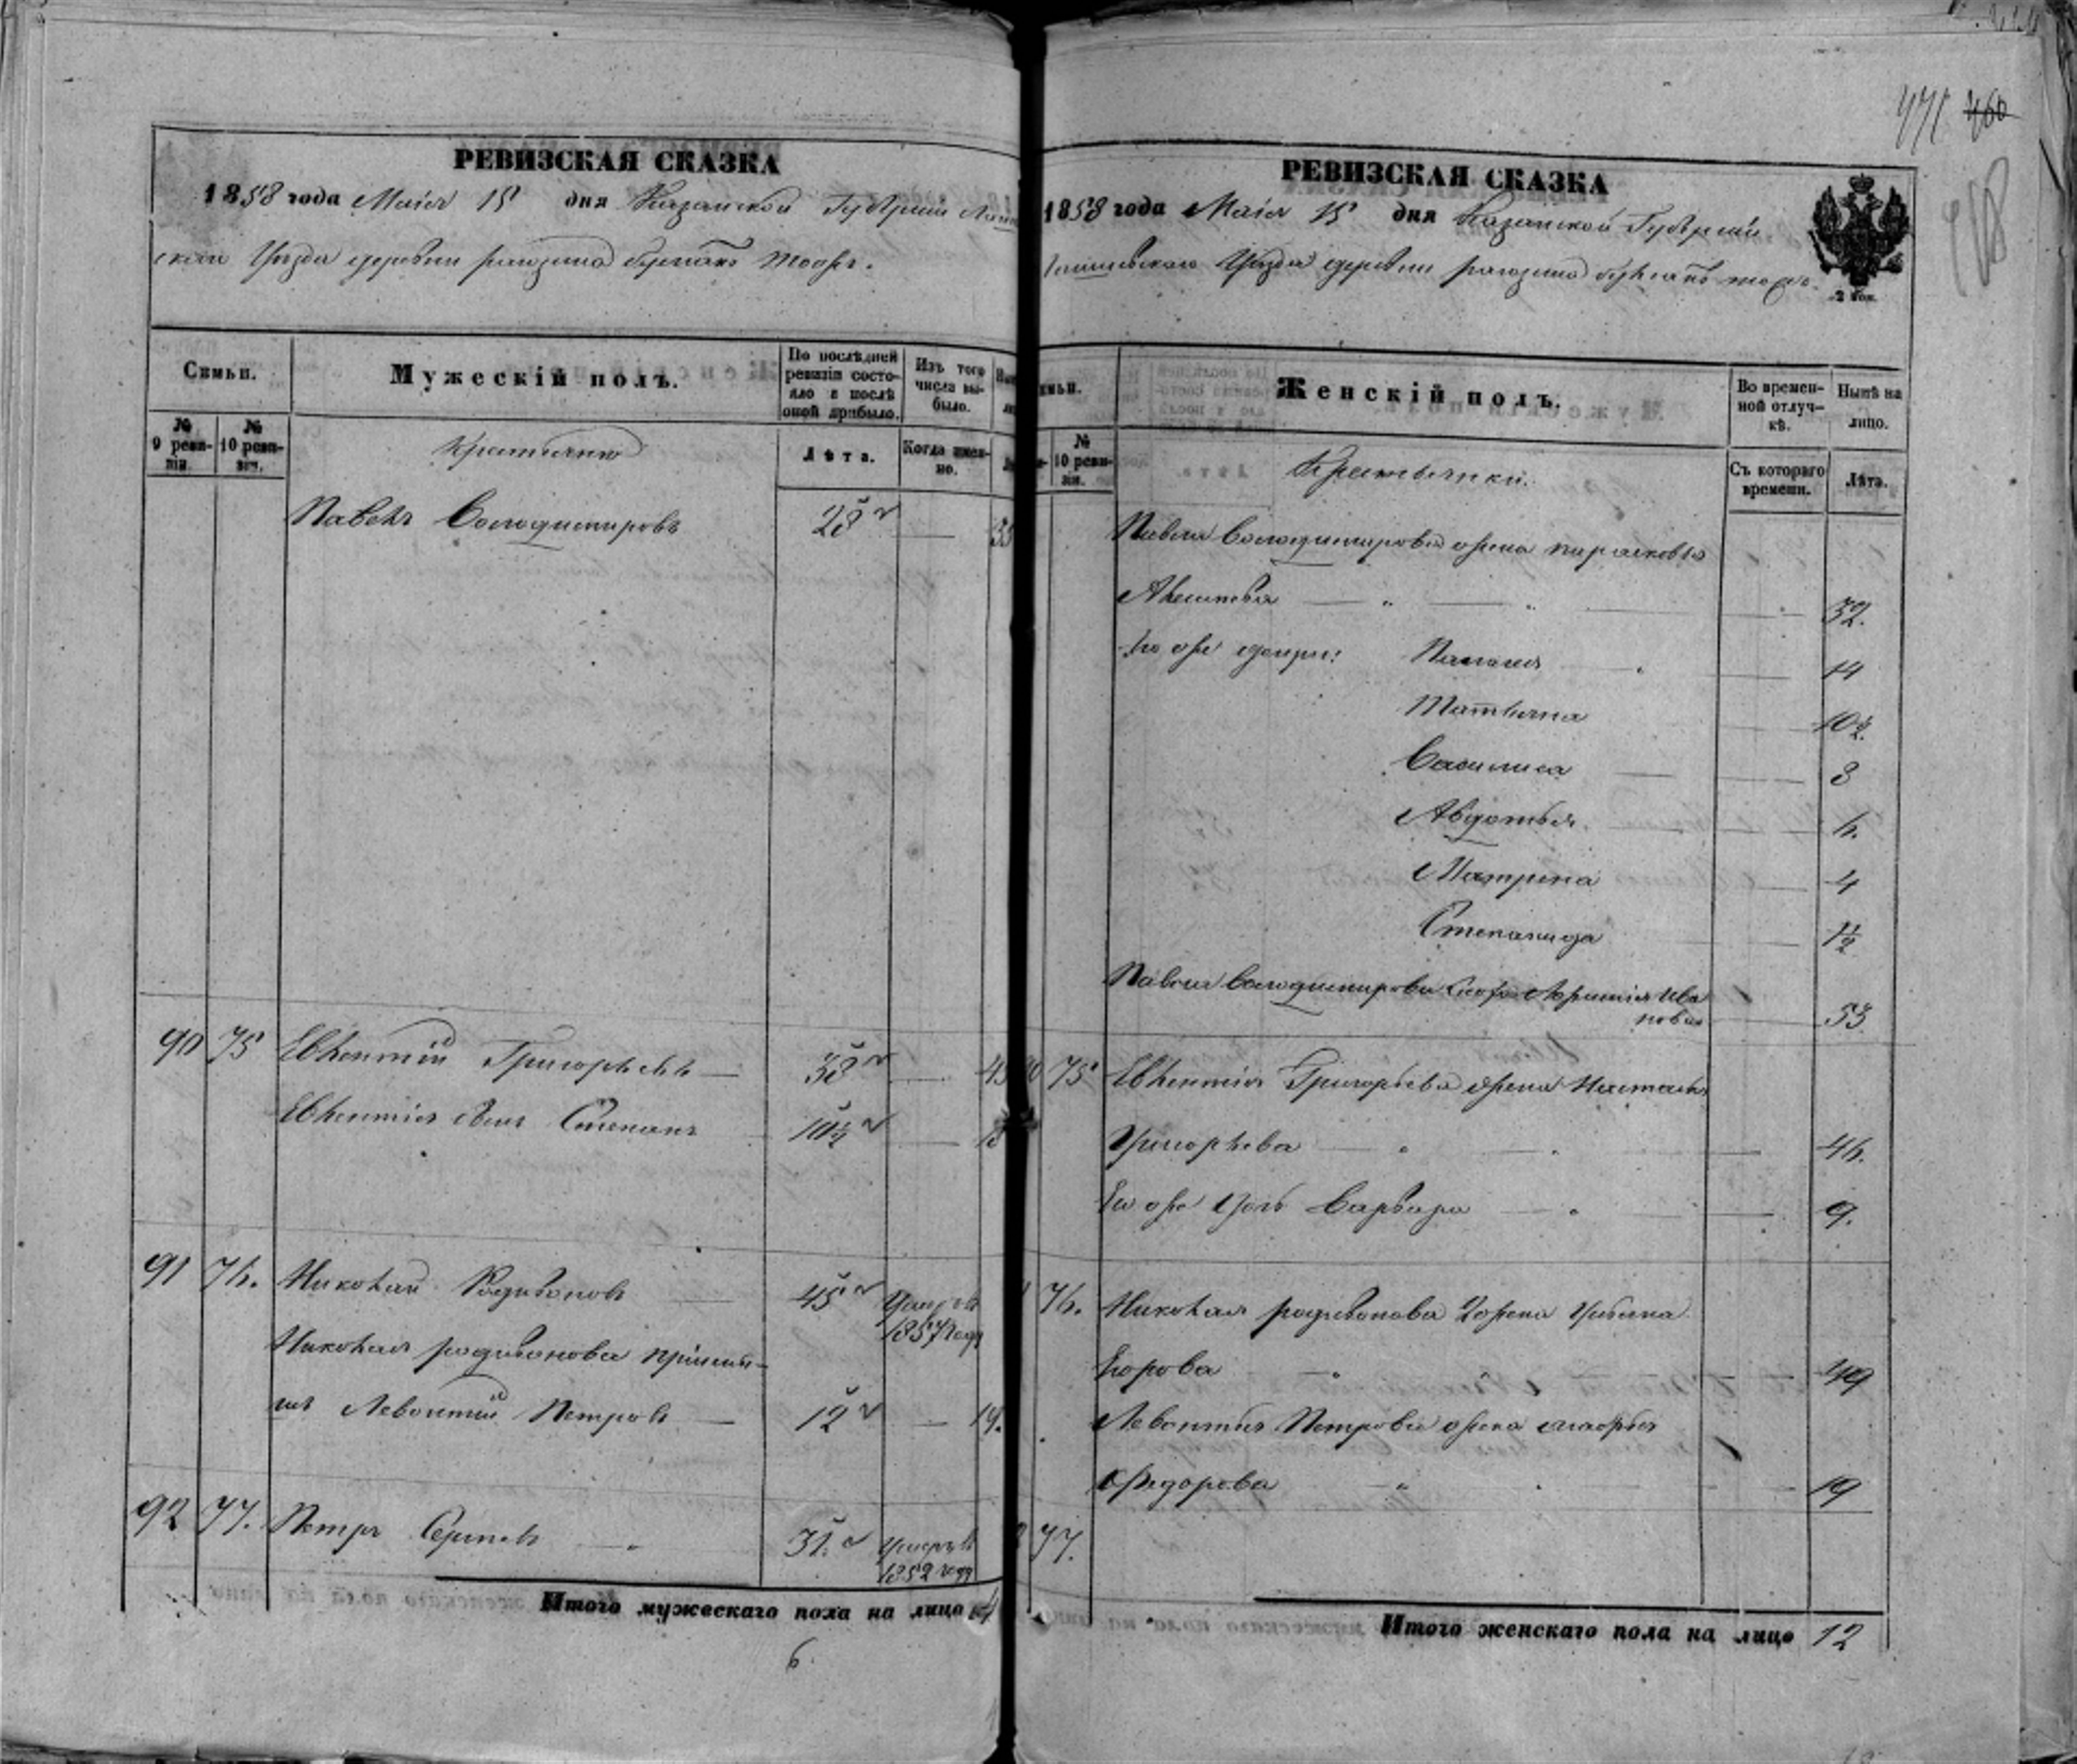 471 460
РЕВИЗСКАЯ СКАЗКА
1858 года Маія 15 дня Казанской Губерніи
скаго Уѣзда деревни тожъ.
Семьи.
№ 9 ревизіи.
№ 10 ревизіи.
Мужескій полъ.
По послѣдней ревизіи состояло и послѣ оной прибыло.
Лѣта.
Изъ того числа выбыло.
Когда именно.
Крестьяне
Павелъ Володимировъ 28 — 35
90 75 Евлентій Григорьевъ — 38 — 45
Евлентія сынъ Степанъ 10½ — 18
91 76. Николай Родивоновъ — 45 Умеръ въ 1857 году
Николая Родивонова пріемы-
шъ Левонтій Петровъ — 12 — 19.
92 77. Петръ Сергѣевъ 31. Умеръ въ 1852 году
Итого мужескаго пола на лицо 4
6.
РЕВИЗСКАЯ СКАЗКА
1858 года Маія 15 дня Казанской Губерніи
Уѣзда деревни тожъ.
2 коп.
№ 10 ревизіи.
Женскій полъ.
Во временной отлучкѣ.
Съ котораго времени.
Нынѣ на лицо.
Лѣта.
Крестьянки.
Павла Володимирова жена Парасковья
— " — " — 32.
Ево же дочери: Палагея " — 14
Татьяна — 10½
Василиса — 8
Авдотья — 6.
Матрена — 4
Степанида — 1½
Павла Володимирова Ива
нова 53
90 75 Евлентія Григорьева жена Настасья
Григорьева — " — 46.
Ево же дочь Варвара — " — 9.
76. Николая Родивонова жена Ульяна
Егорова " — 49
Левонтья Петрова жена Марья
Федорова " — 19
77.
Итого женскаго пола на лицо 12